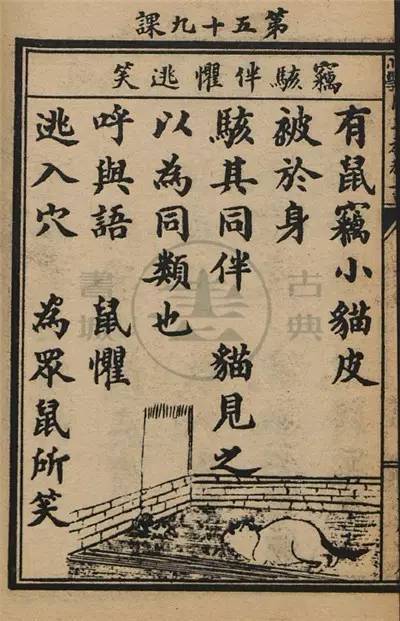 第五十九課
竊駭伴懼逃笑
有鼠竊小貓皮
被於身
駭其同伴 貓見之
以為同類也
呼與語 鼠懼
逃入穴 為眾鼠所笑
古典
書城